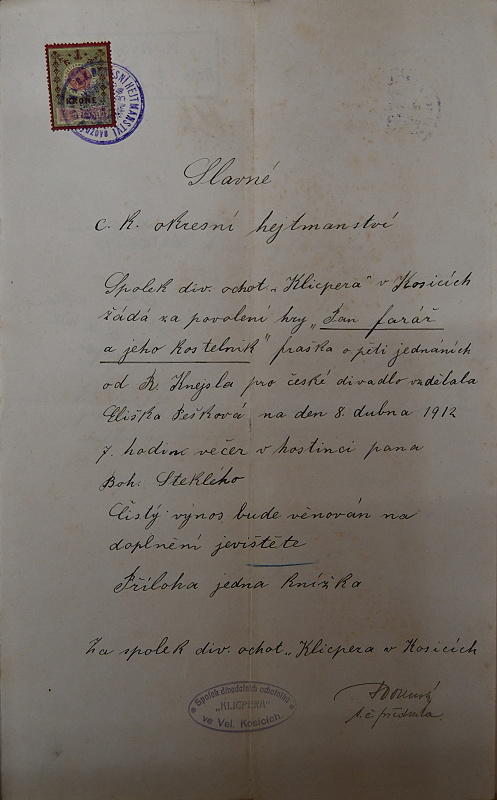 1
KRONE
OKRESNÍ HEJTMANSTVÍ
Slavné
c. k. okresní hejtmanství
Spolek div. ochot. „Klicpera" v Kosicích
žádá za povolení hry „Pan farář
a jeho kostelník" fraška o pěti jednáních
od R. Knejsla pro české divadlo vzdělala
Eliška Pešková na den 8. dubna 1912
7. hodin večer v hostinci pana
Boh. Steklého
Čistý výnos bude věnován na
doplnění jevištěte
Příloha jedna knížka
Za spolek div. ochot. „Klicpera v Kosicích
Spolek divadelních ochotníků
„KLICPERA"
ve Vel. Kosicích.
t. č. předseda.